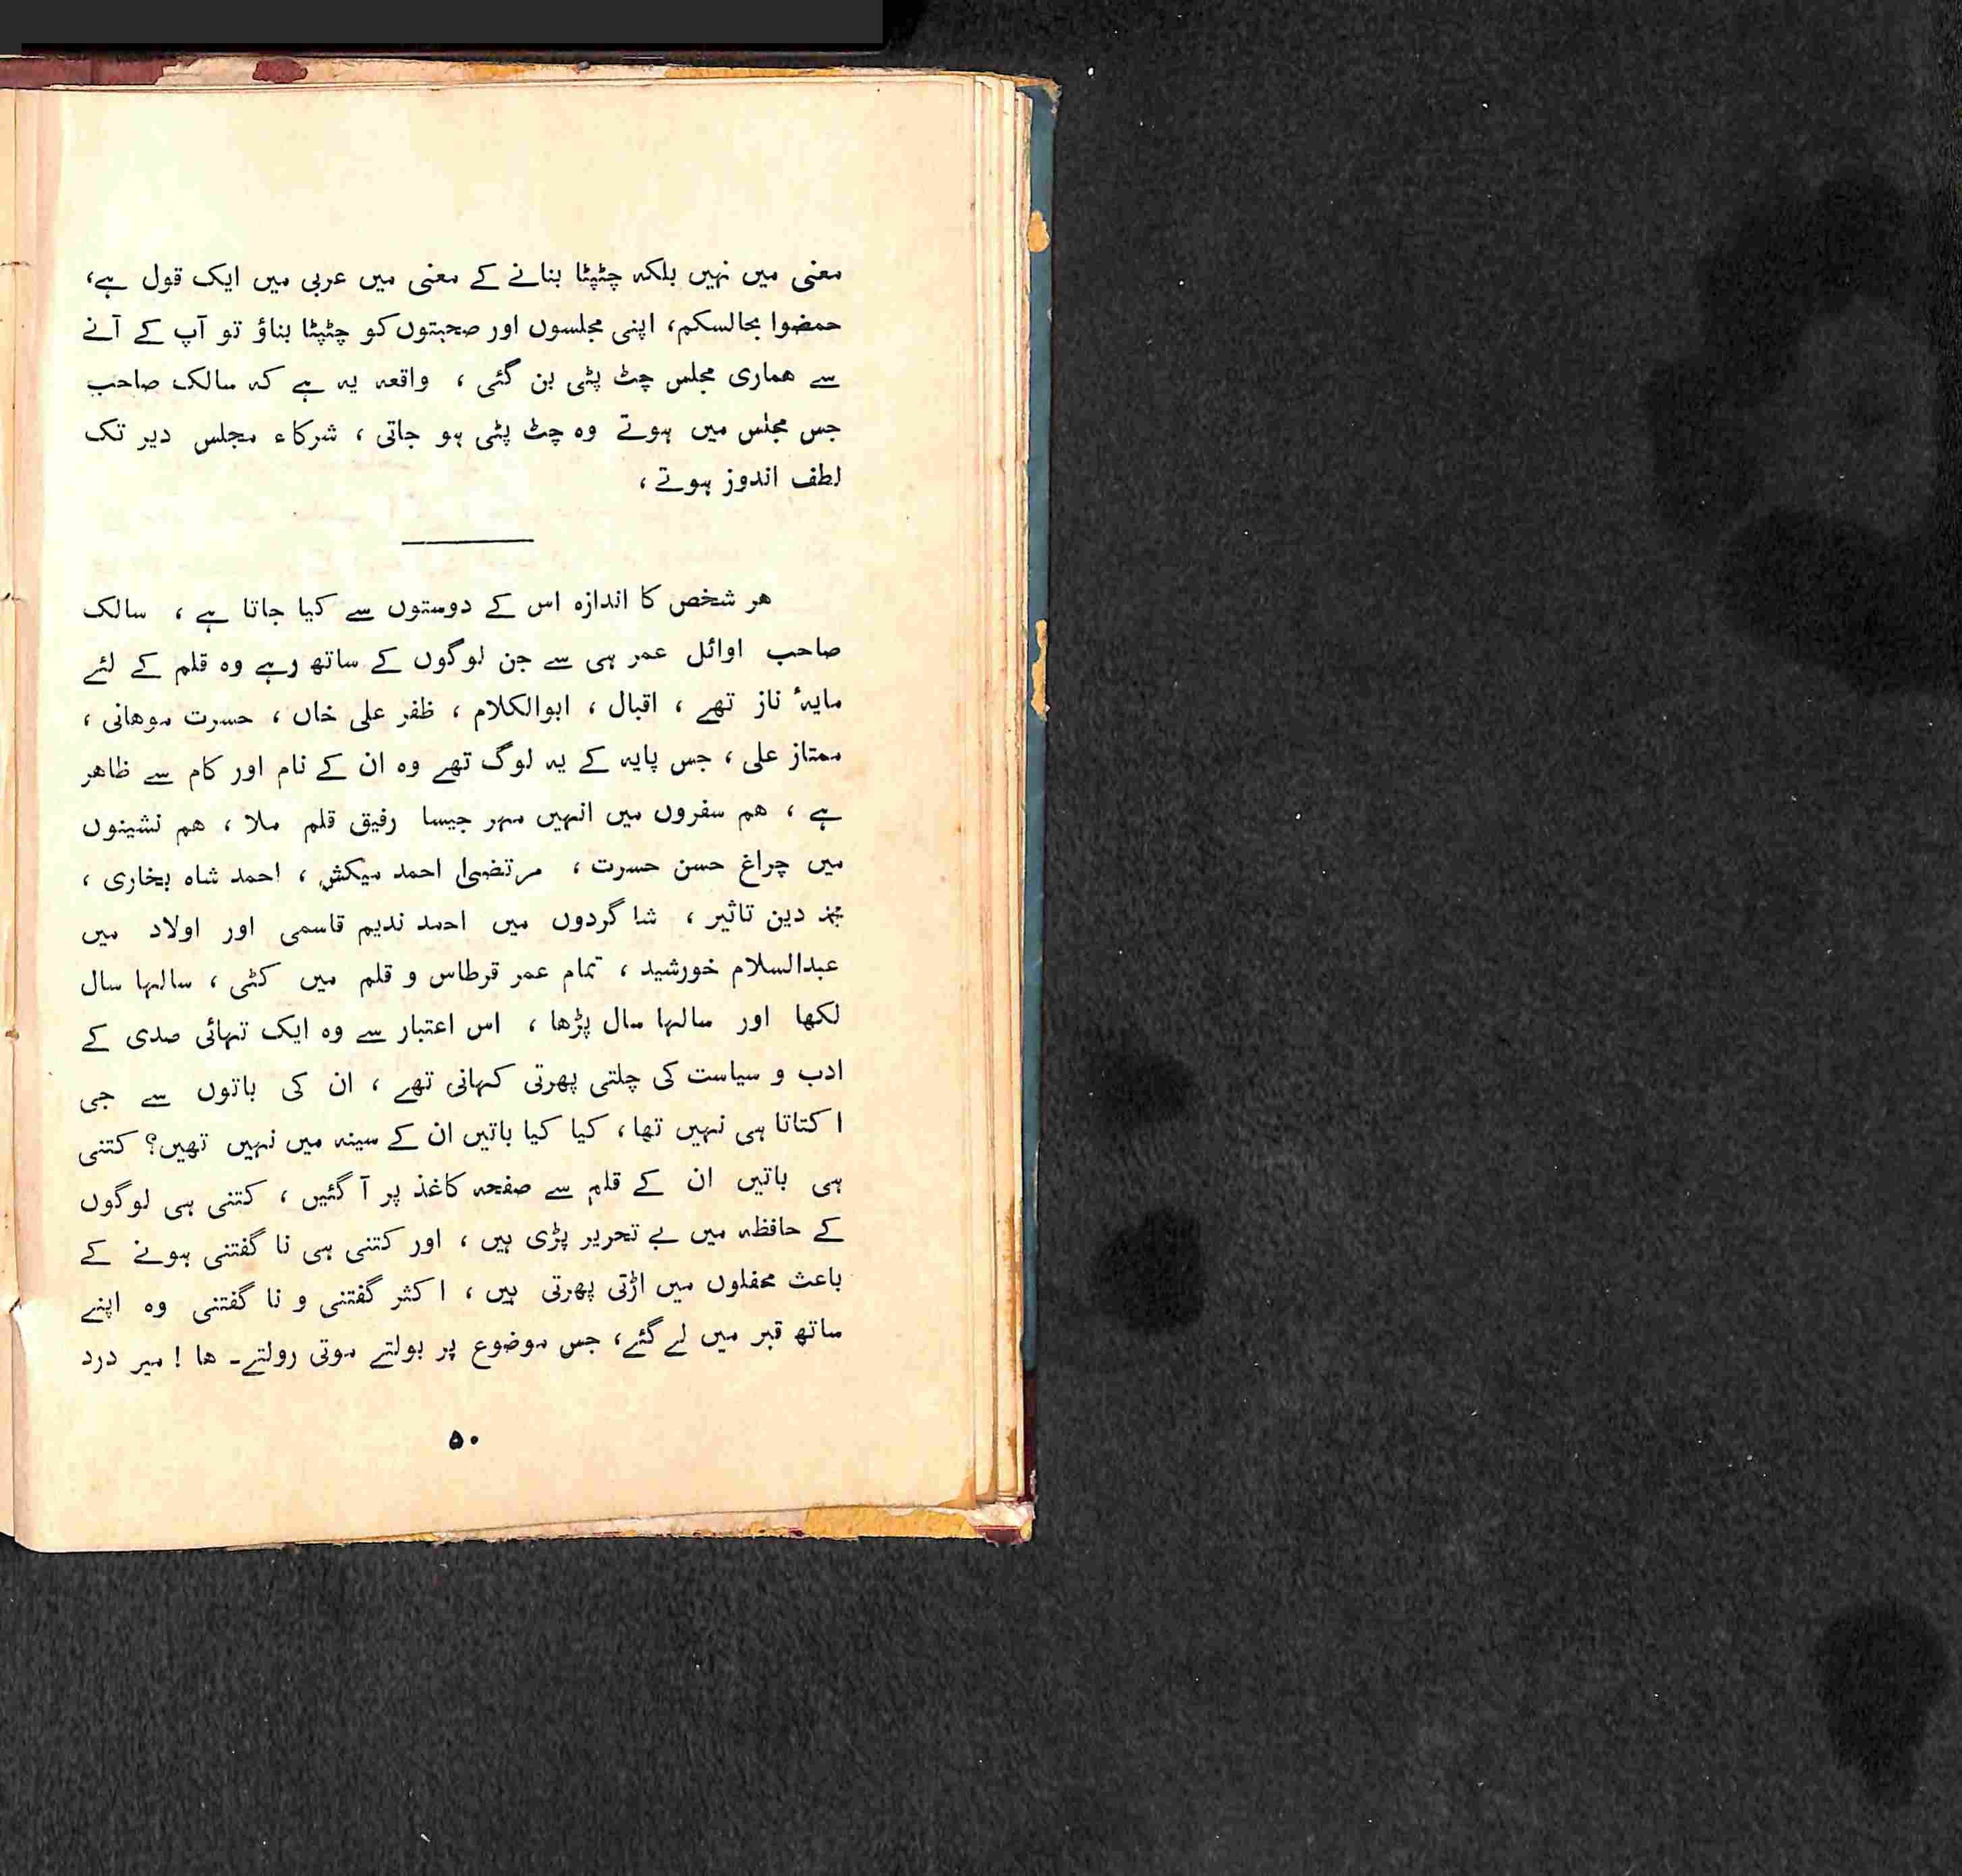 معنی میں نہیں بلکہ چٹپٹا بنانے کے معنی میں عربی میں ایک قول ہے،
حمضوا مجالسکم، اپنی مجلسوں اور صحبتوں کو چٹپٹا بناؤ تو آپ کے آنے
سے ھماری مجلس چٹ پٹی بن گئی ، واقعہ یہ ہے کہ سالک صاحب
جس مجلس میں ہوتے وہ چٹ پٹی ہو جاتی ، شرکاء مجلس دیر تک
لطف اندوز ہوتے ،
ھر شخص کا اندازہ اس کے دوستوں سے کیا جاتا ہے ، سالک
صاحب اوائل عمر ہی سے جن لوگوں کے ساتھ رہے وہ قلم کے لئے
مایۂ ناز تھے ، اقبال ، ابوالکلام ، ظفر علی خاں ، حسرت موھانی ،
ممتاز علی ، جس پایہ کے یہ لوگ تھے وہ ان کے نام اور کام سے ظاھر
ہے ، ھم سفروں میں انہیں مہر جیسا رفیق قلم ملا ، ھم نشینوں
میں چراغ حسن حسرت ، مرتضیٰ احمد میکش ، احمد شاہ بخاری ،
محمد دین تاثیر ، شا گردوں میں احمد ندیم قاسمی اور اولاد میں
عبدالسلام خورشید ، تمام عمر قرطاس و قلم میں کٹی ، سالہا سال
لکھا اور سالہا سال پڑھا ، اس اعتبار سے وہ ایک تہائی صدی کے
ادب و سیاست کی چلتی پھرتی کہانی تھے ، ان کی باتوں سے جی
ا کتاتا ہی نہیں تھا، کیا کیا باتیں ان کے سینہ میں نہیں تھیں؟ کتنی
ہی باتیں ان کے قلم سے صفحہ کاغذ پر آ گئیں ، کتنی ہی لوگوں
کے حافظہ میں بے تحریر پڑی ہیں ، اور کتنی ہی نا گفتنی ہونے کے
باعث محفلوں میں اڑتی پھرتی ہیں ، ا کثر گفتنی و نا گفتنی وہ اپنے
ساتھ قبر میں لے گئے، جس موضوع پر بولتے موتی رولتے۔ ھا ! میر درد
۵۰